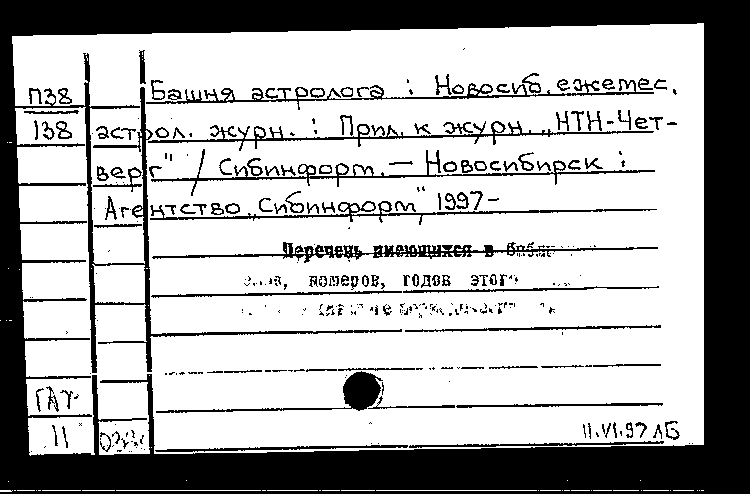 П38 Башня астролога : Новосиб. ежемес.
138 астрол. журн. : Прил. к журн. „НТН-Чет-
верг" / Сибинформ. — Новосибирск :
Агентство „Сибинформ", 1997-
Перечень имеющихся в
номеров, годов этого
11
11.VI.97 АБ